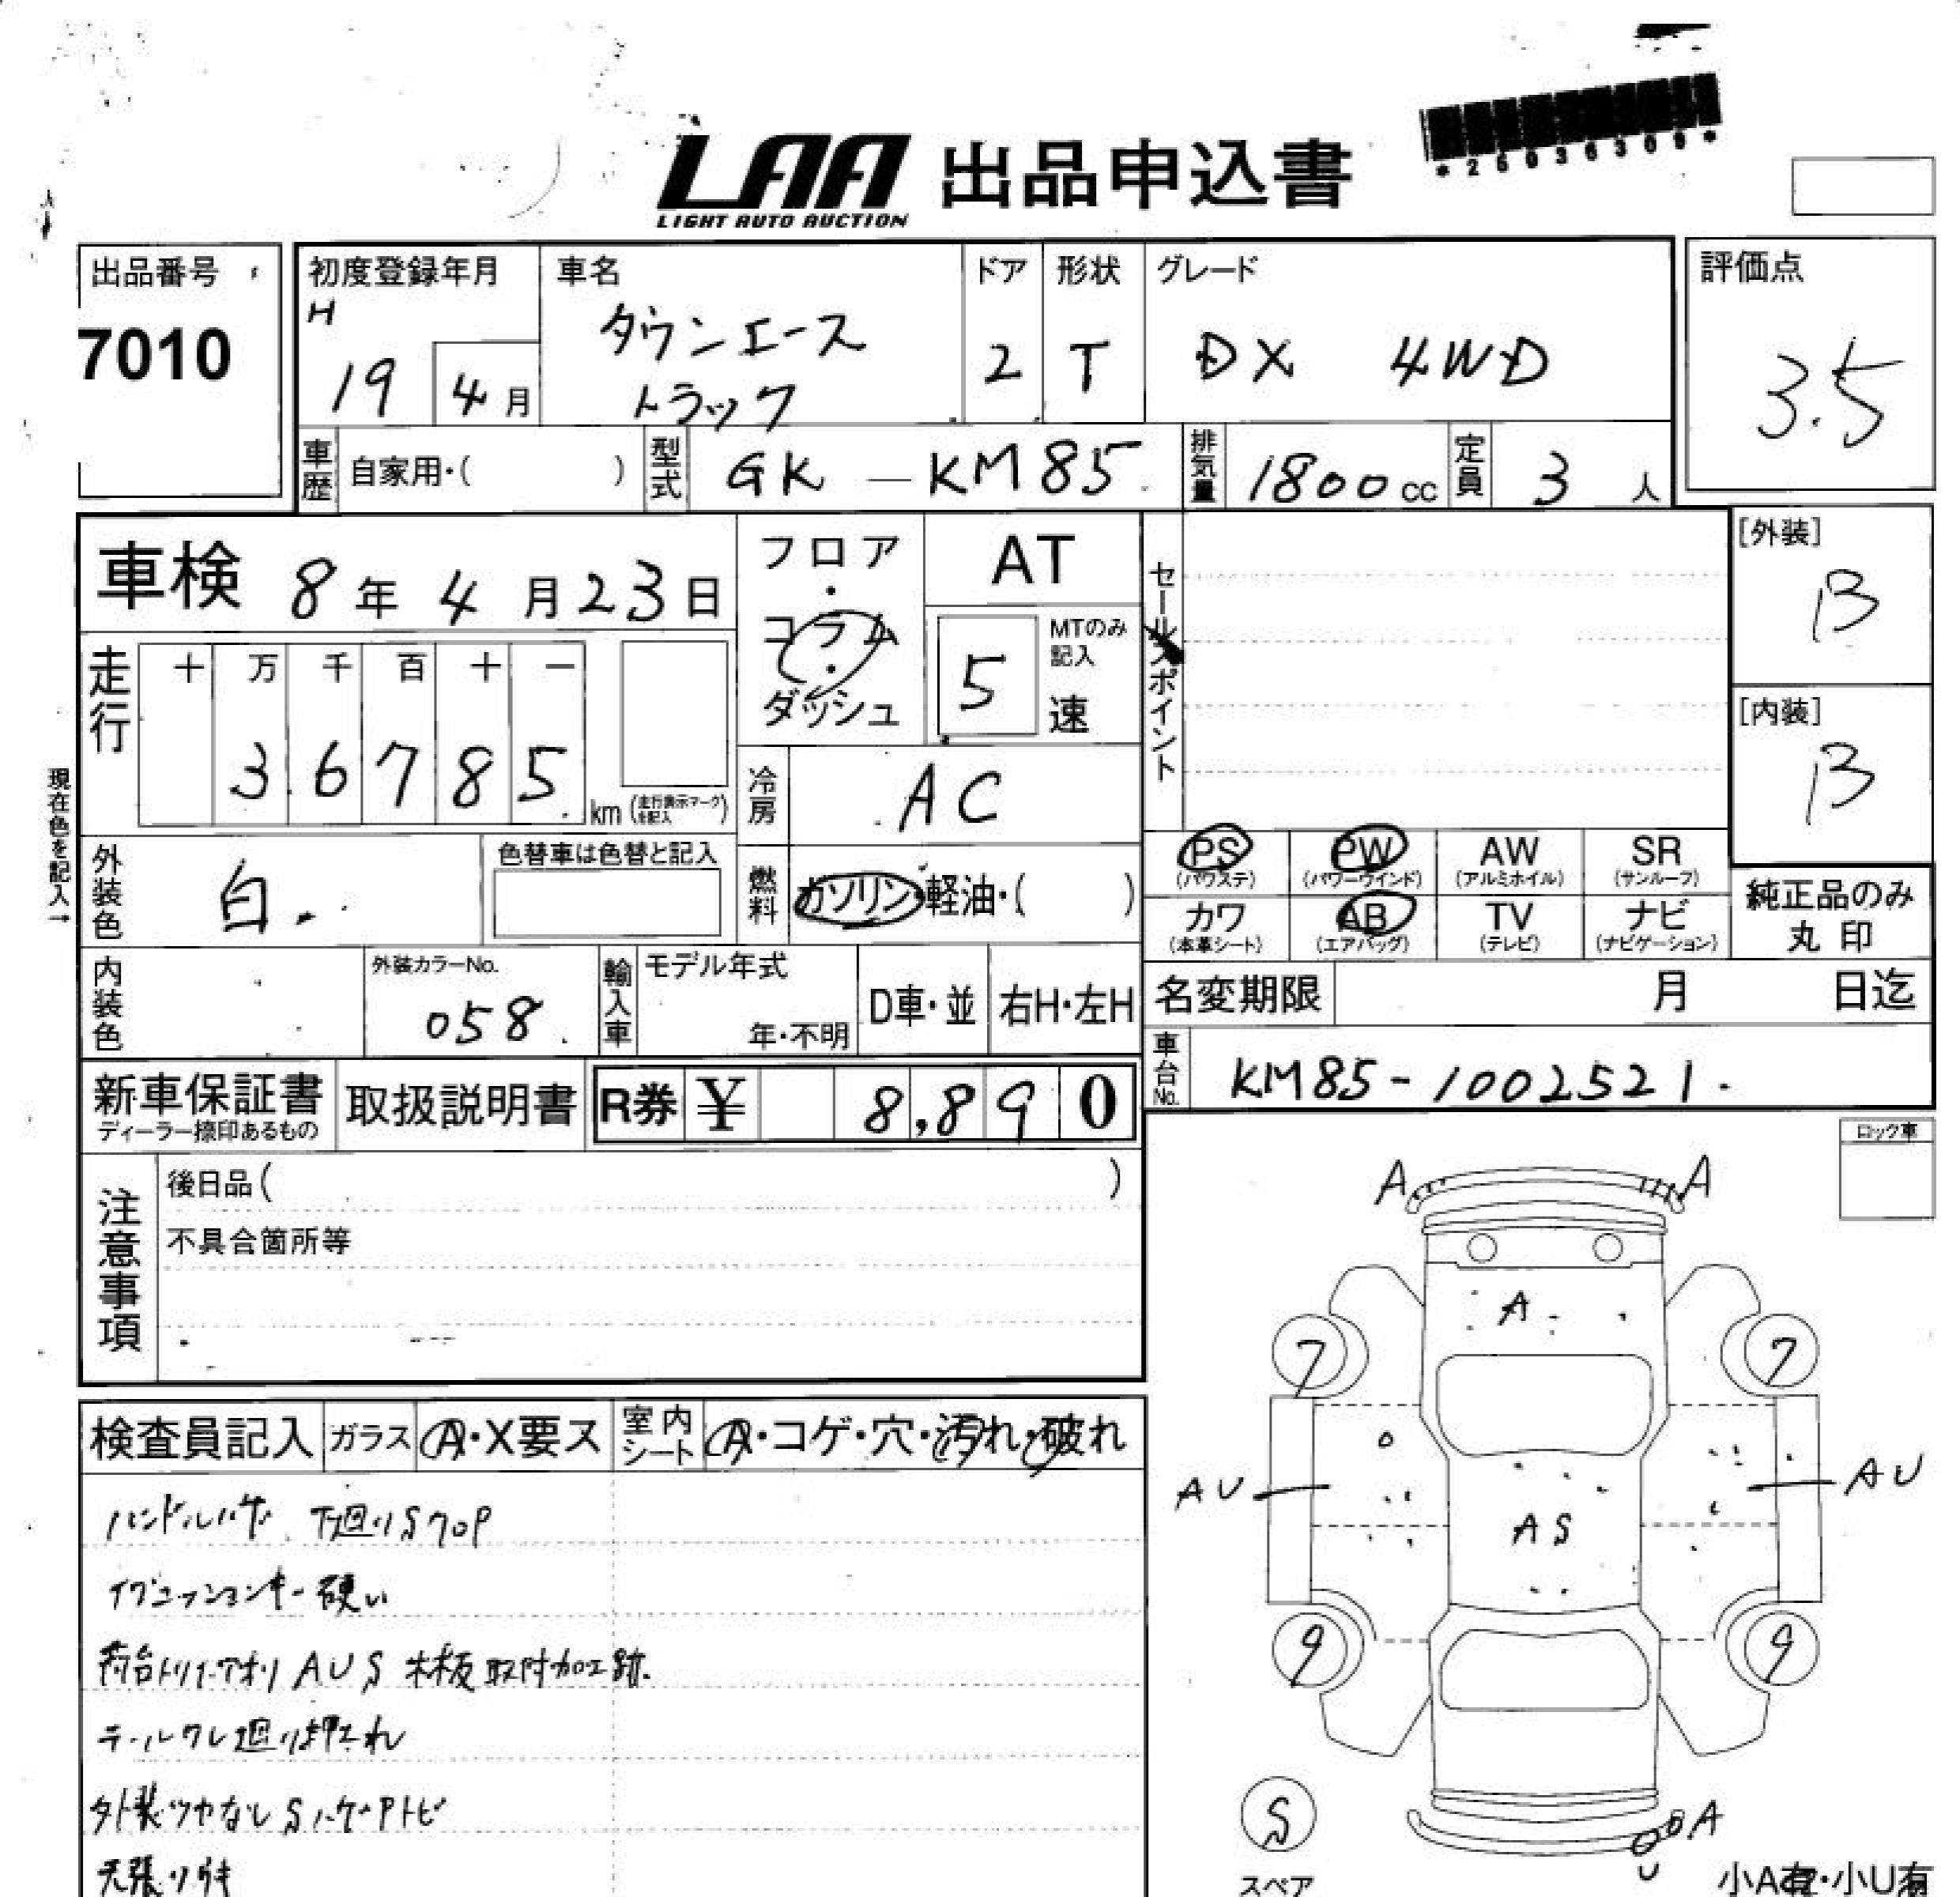 LAA 出品申込書
LIGHT AUTO AUCTION
*25036309*
出品番号
7010
初度登録年月
H
19 4月
車名
タウンエース
トラック
ドア
2
形状
T
グレード
DX 4WD
評価点
3.5
車歴 自家用・( )
型式 GK - KM85
排気量 1800cc
定員 3 人
車検 8年 4月 23日
フロア・コラム・ダッシュ
AT
5 MTのみ記入 速
セールスポイント
[外装]
B
[内装]
B
走行 十 万 千 百 十 一
3 6 7 8 5 km (走行表示マークを記入)
現在色を記入→
冷房 AC
外装色 白
色替車は色替と記入
燃料 ガソリン・軽油・( )
PS (パワステ)
PW (パワーウインド)
AW (アルミホイル)
SR (サンルーフ)
カワ (本革シート)
AB (エアバッグ)
TV (テレビ)
ナビ (ナビゲーション)
純正品のみ
丸印
内装色
外装カラーNo.
058
輸入車
モデル年式
年・不明
D車・並
右H・左H
名変期限 月 日迄
車台No. KM85-1002521
新車保証書
ディーラー捺印あるもの
取扱説明書
R券 ¥ 8,890
ロック車
注意事項
後日品( )
不具合箇所等
検査員記入
ガラス A・X要ス
室内シート A・コゲ・穴・汚れ・破れ
ハンドルハゲ 下廻りS
イグニッションキー硬い
荷台トリイ・アオリ AUS 木板取付加工跡.
テールランプ廻り
外装ツヤなし Sハゲ・Pトビ
天張り
A A
A
7 7
AU AU
AS
9 9
S
スペア
A
U
小A有・小U有